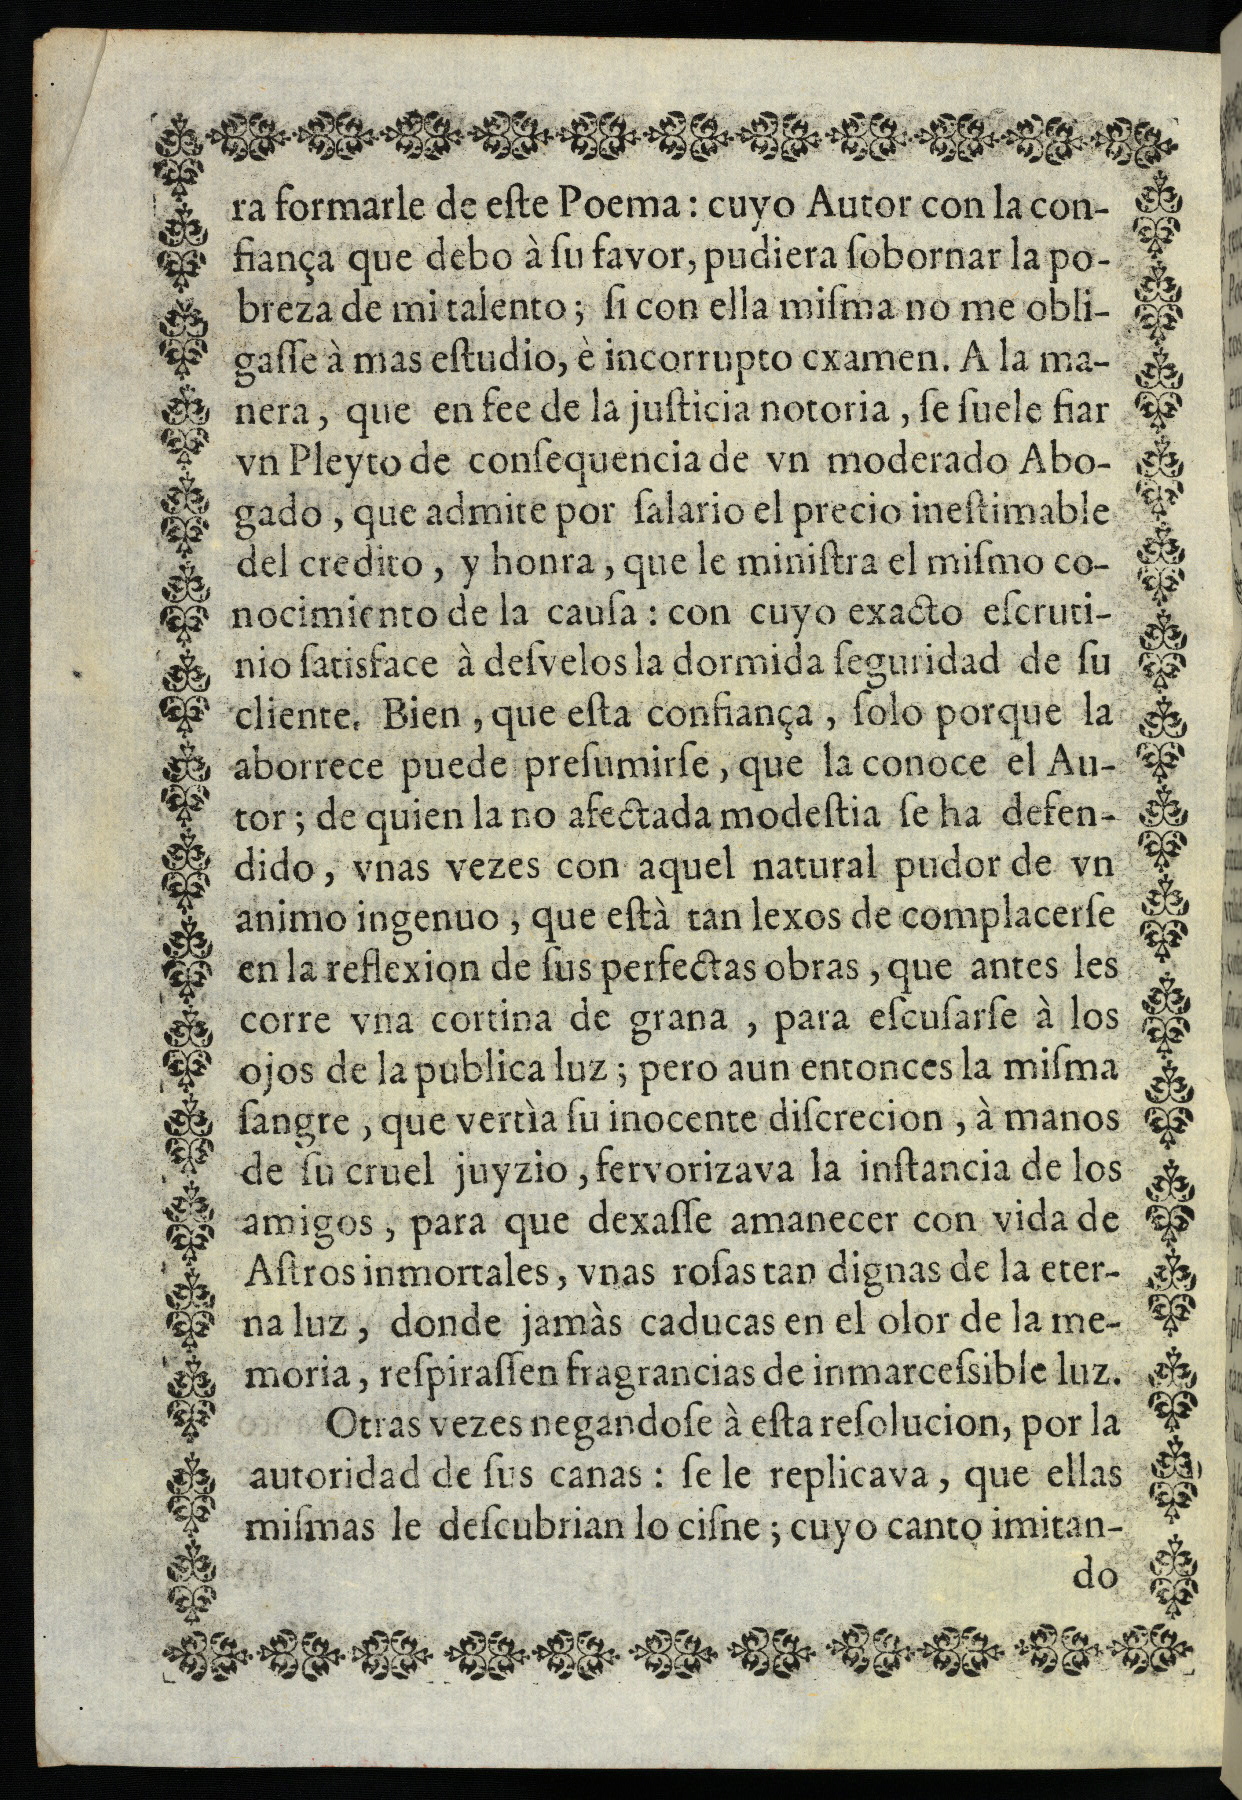 ra formarle de eſte Poema: cuyo Autor con la con-
fiança que debo à ſu favor, pudiera ſobornar la po-
breza de mi talento; ſi con ella miſma no me obli-
gaſſe à mas eſtudio, è incorrupto examen. A la ma-
nera, que en fee de la juſticia notoria, ſe ſuele fiar
vn Pleyto de conſequencia de vn moderado Abo-
gado, que admite por ſalario el precio ineſtimable
del credito, y honra, que le miniſtra el miſmo co-
nocimiento de la cauſa: con cuyo exacto eſcruti-
nio ſatisface à deſvelos la dormida ſeguridad de ſu
cliente. Bien, que eſta confiança, ſolo porque la
aborrece puede preſumirſe, que la conoce el Au-
tor; de quien la no afectada modeſtia ſe ha defen-
dido, vnas vezes con aquel natural pudor de vn
animo ingenuo, que eſtà tan lexos de complacerſe
en la reflexion de ſus perfectas obras, que antes les
corre vna cortina de grana, para eſcuſarſe à los
ojos de la publica luz; pero aun entonces la miſma
ſangre, que vertìa ſu inocente diſcrecion, à manos
de ſu cruel juyzio, fervorizava la inſtancia de los
amigos, para que dexaſſe amanecer con vida de
Aſtros inmortales, vnas roſas tan dignas de la eter-
na luz, donde jamàs caducas en el olor de la me-
moria, reſpiraſſen fragrancias de inmarceſsible luz.
Otras vezes negandoſe à eſta reſolucion, por la
autoridad de ſus canas: ſe le replicava, que ellas
miſmas le deſcubrian lo ciſne; cuyo canto imitan-
do